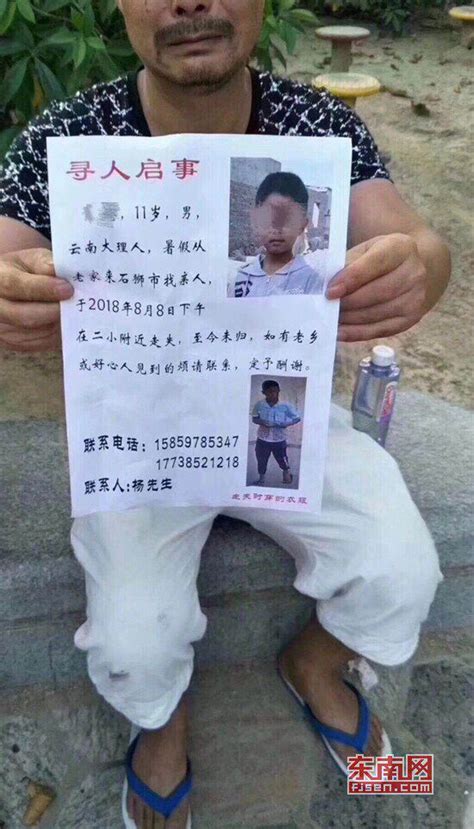 寻人启事
，11岁，男，
云南大理人，暑假从
老家来石狮市找亲人，
于2018年8月8日下午
在二小附近走失，至今未归，如有老乡
或好心人见到的烦请联系，定予酬谢。
联系电话：15859785347
17738521218
联系人：杨先生
走失时穿的衣服
东南网
fjsen.com